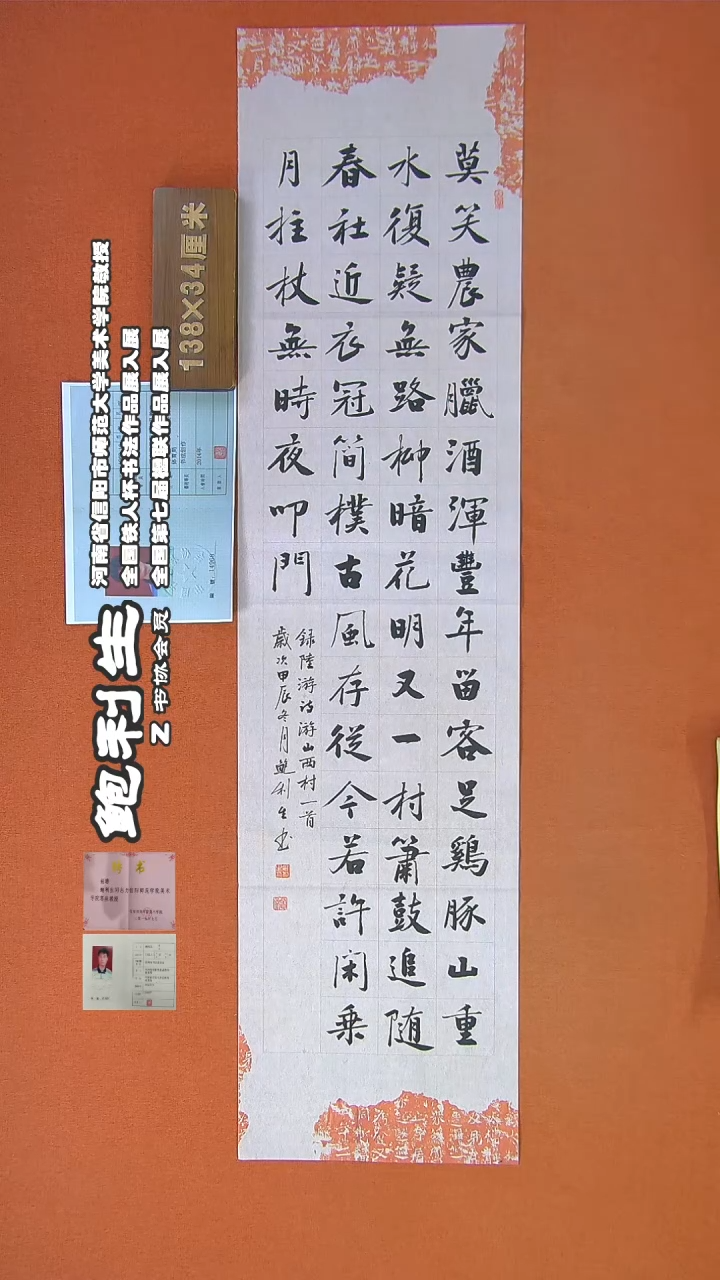 莫笑農家臘酒渾豐年留客足鷄豚山重
水復疑無路柳暗花明又一村簫鼓追随
春社近衣冠簡樸古風存從今若許闲乘
月拄杖無時夜叩門
録陸游诗游山西村一首
歲次甲辰冬月鮑利生书
138×34厘米
河南省信阳市师范大学美术学院教授
全国铁人杯书法作品展入展
全国第七届楹联作品展入展
鲍利生
Z 书协会员
聘书